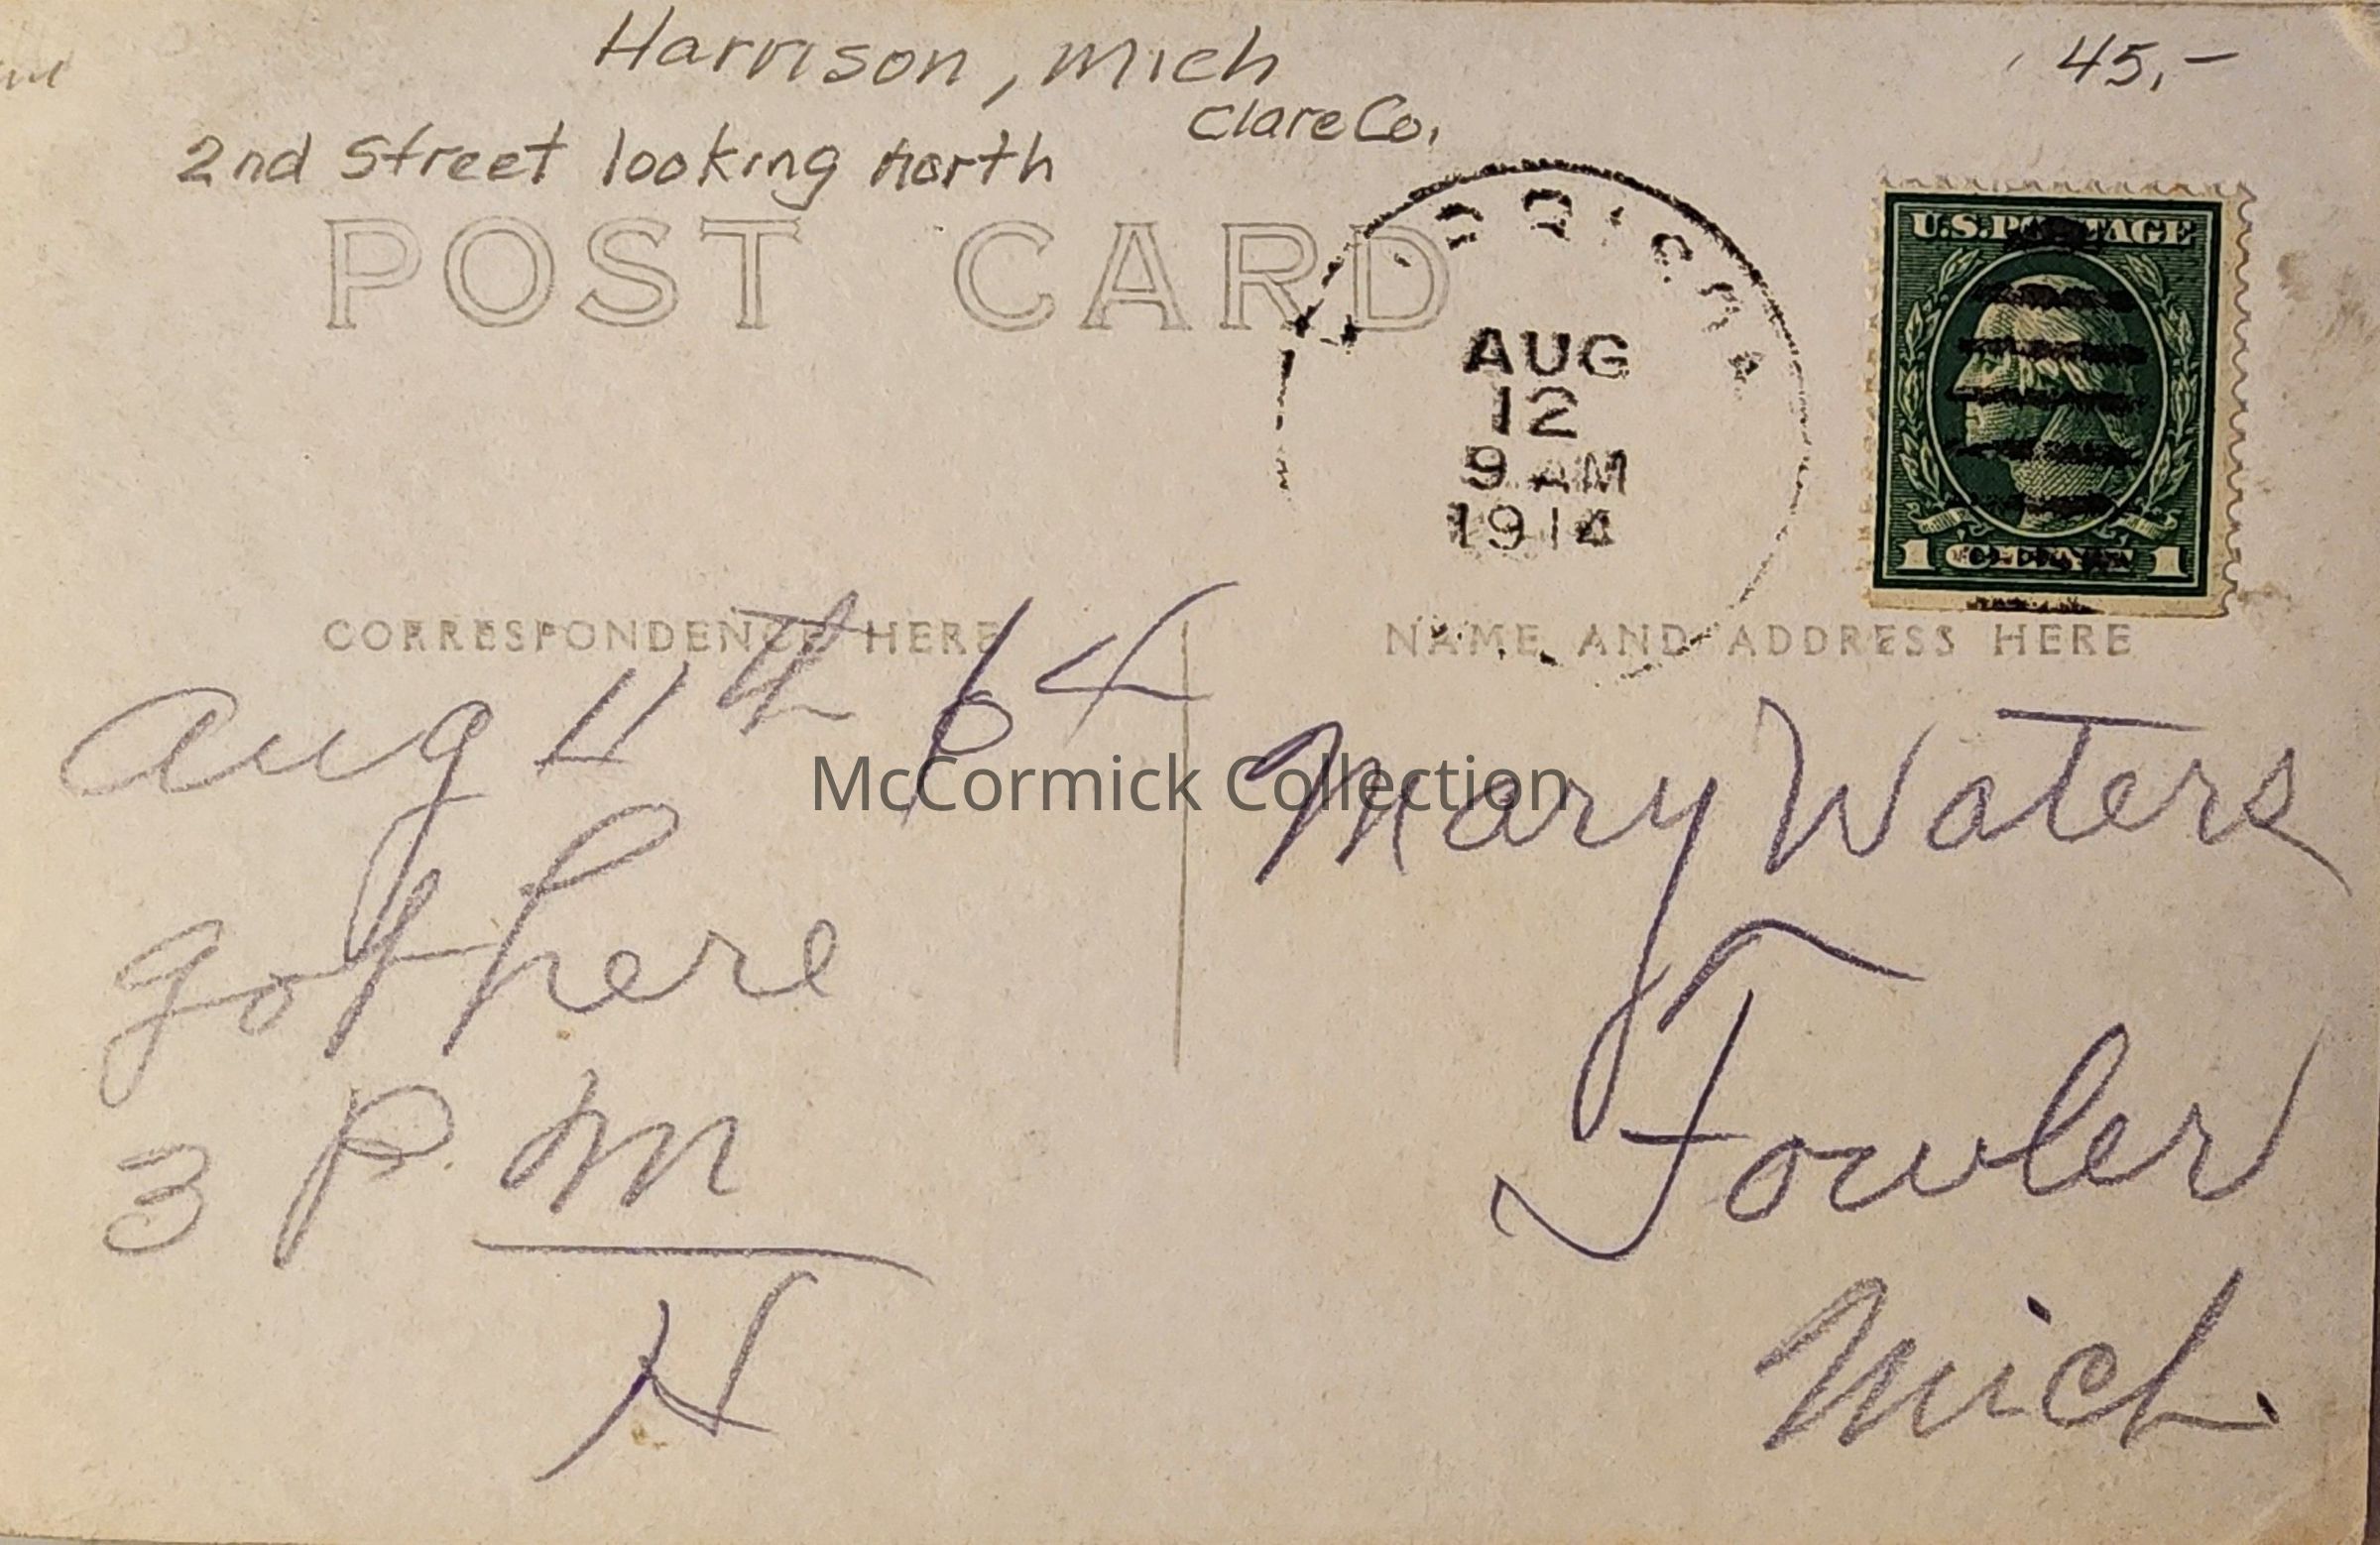 Harrison, Mich
45,-
Clare Co.
2nd Street looking north
POST CARD
AUG
12
9 AM
1914
U.S. POSTAGE
1 1
CORRESPONDENCE HERE
NAME AND ADDRESS HERE
Aug 11th
got here
3 P. M
H
Mary Waters
Fowler
Mich.
McCormick Collection